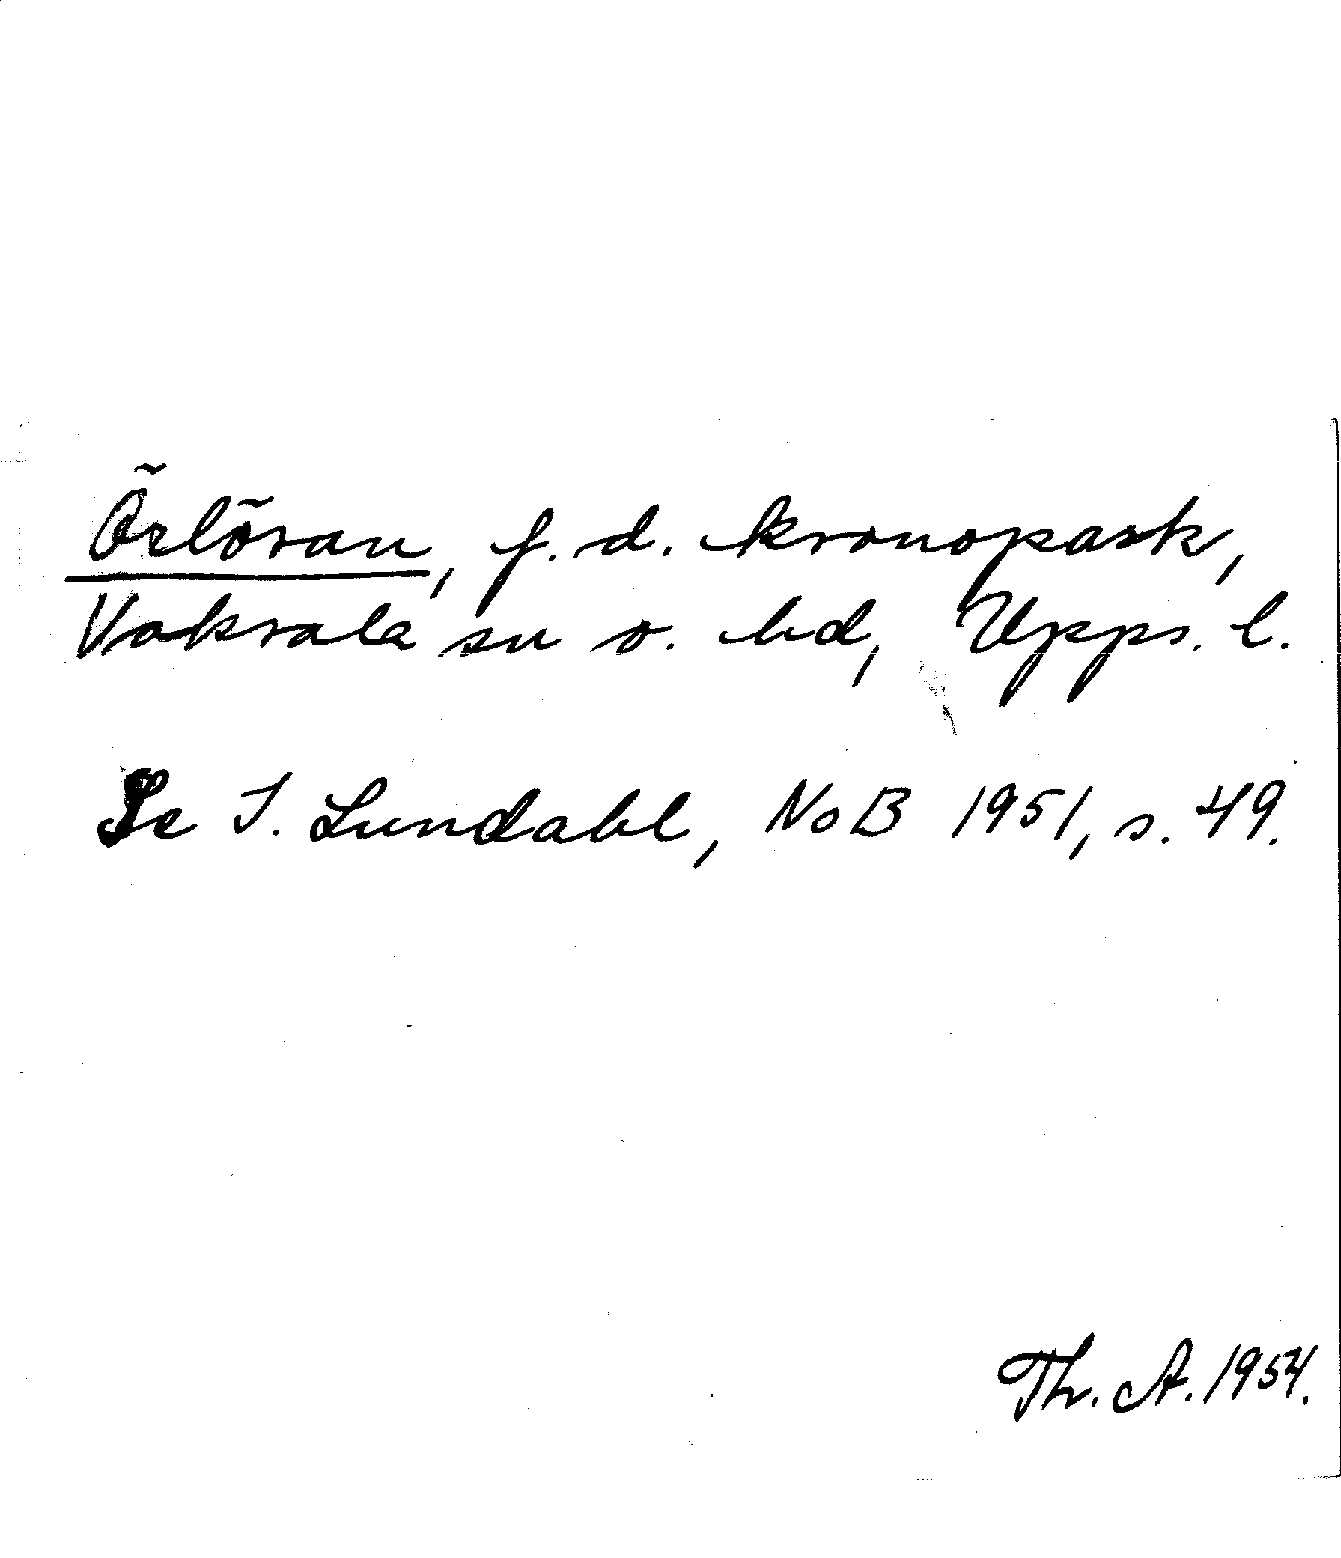 Örlösan, f.d. kronopark,
Vaksala sn o. hd, Upps. l.
Se I. Lundahl, NoB 1951, s. 49.
Th. A. 1954.